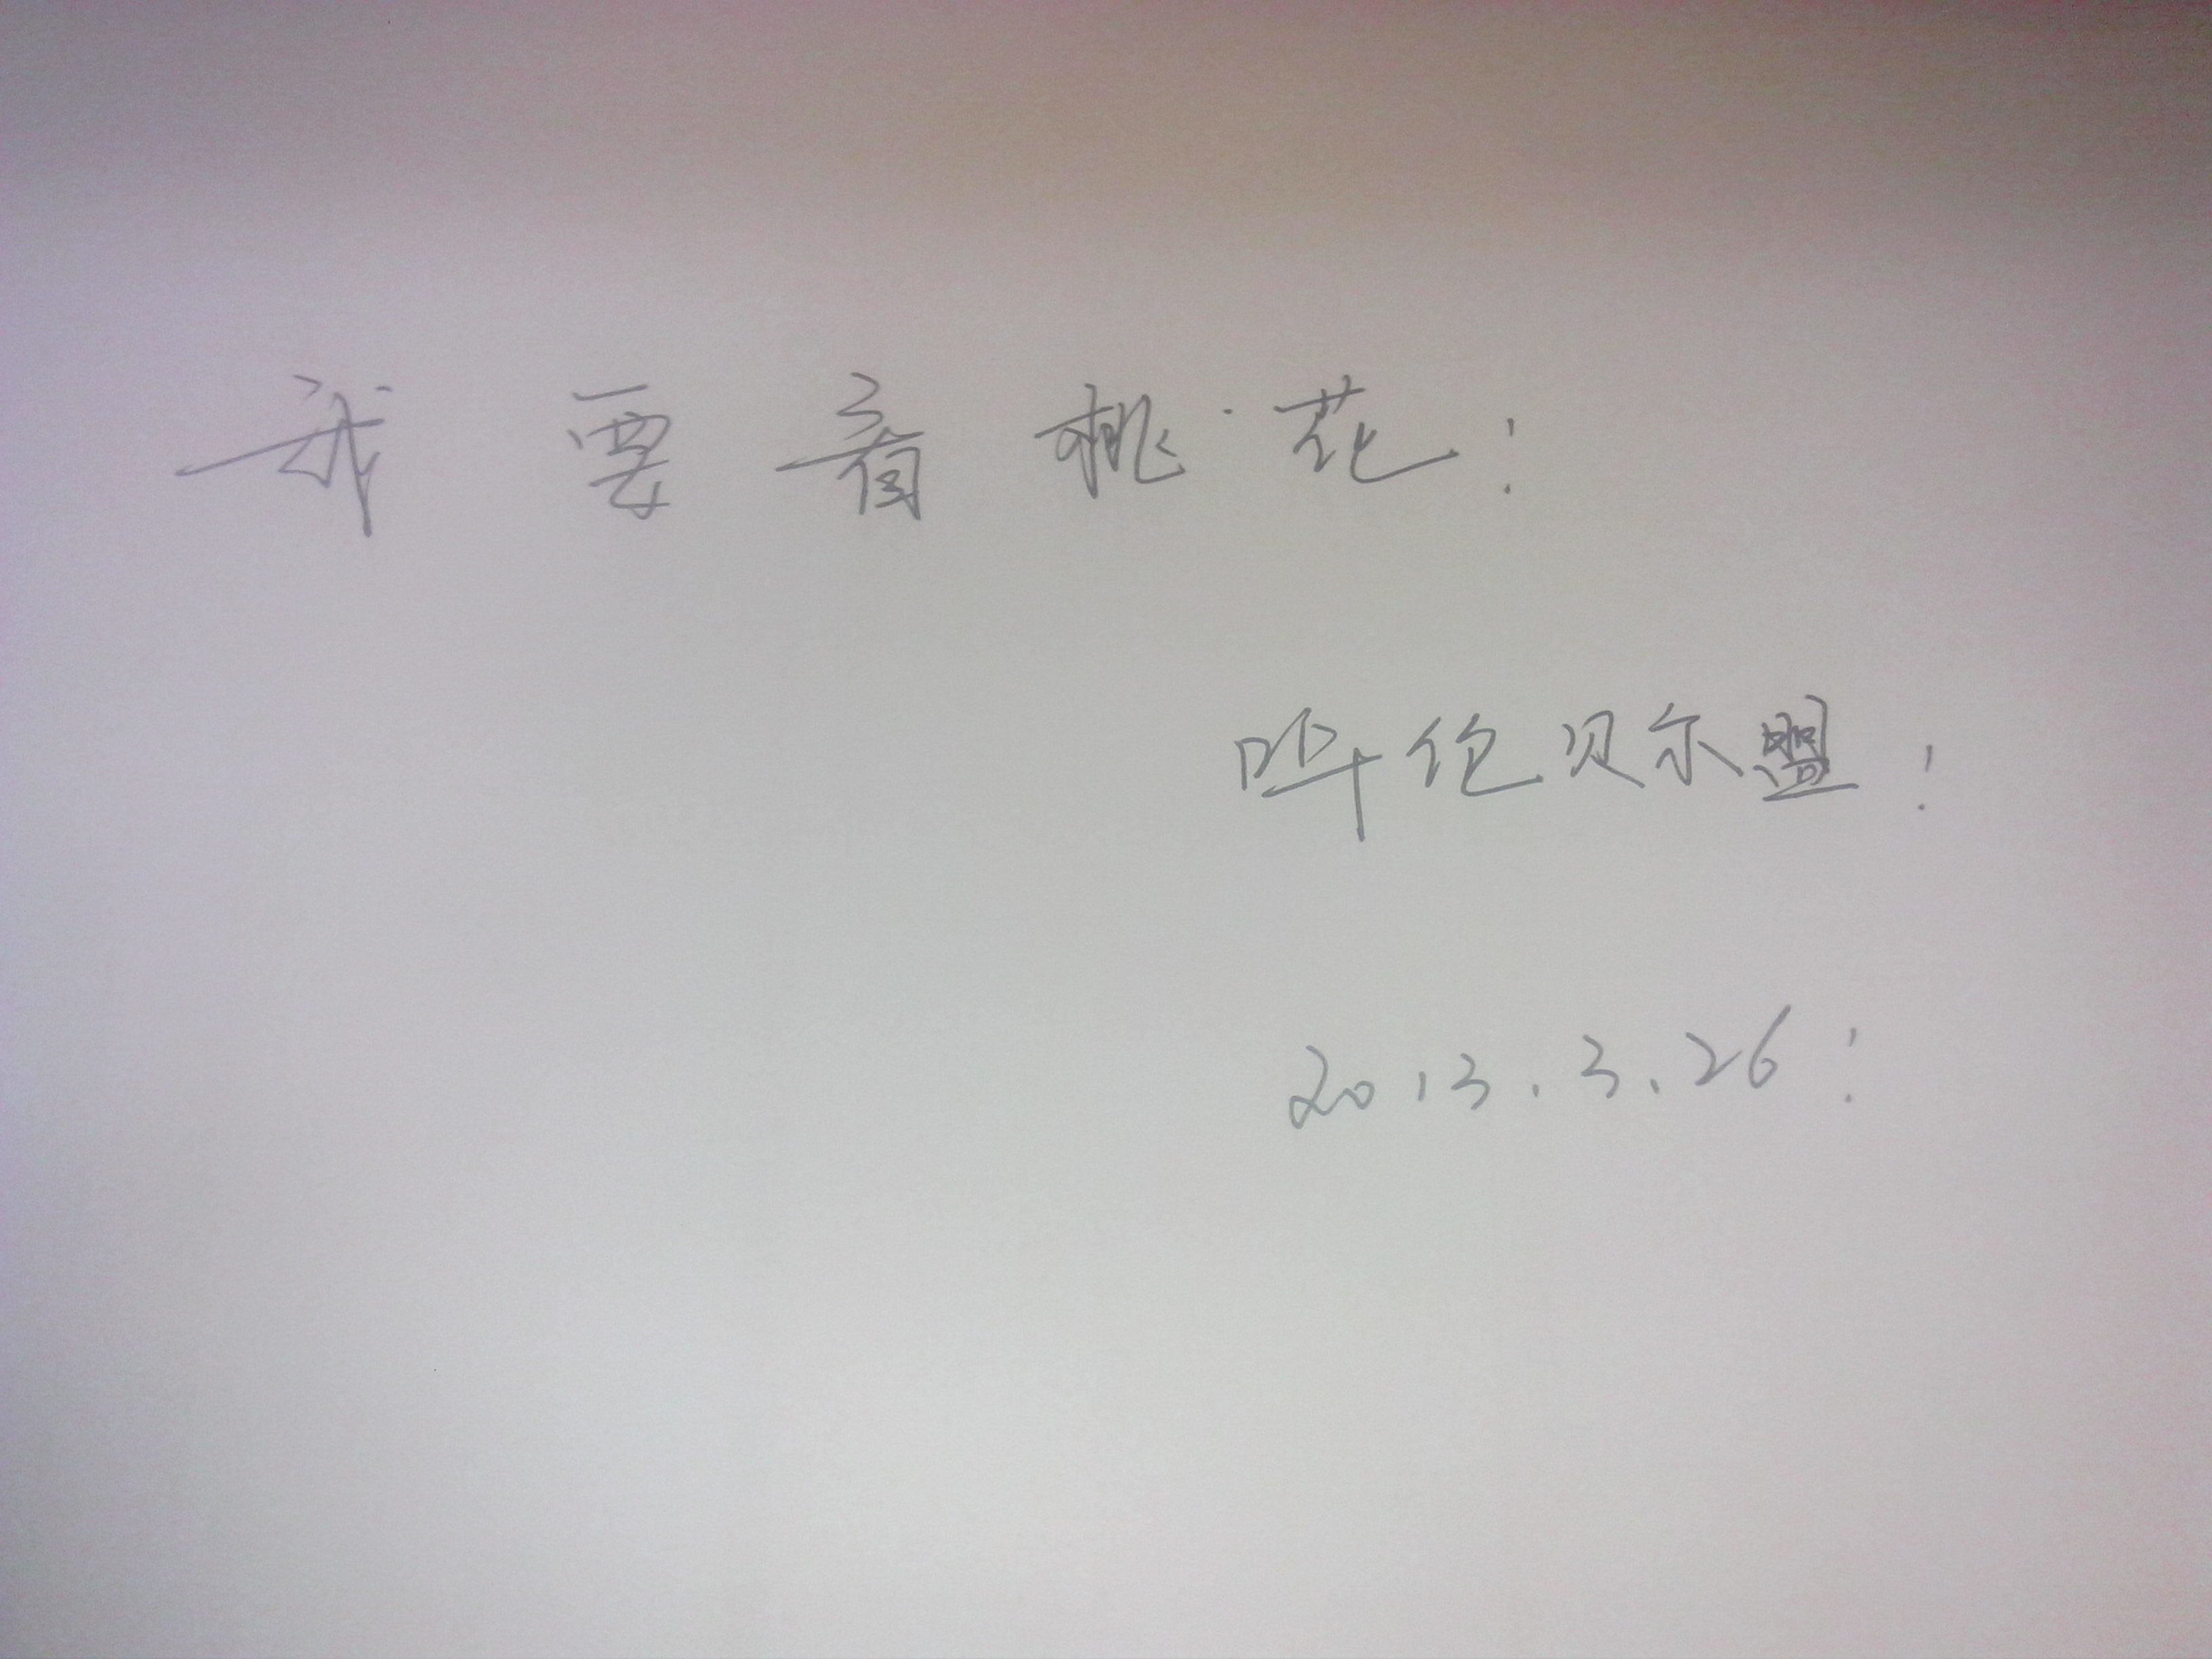 我要看桃花！
呼伦贝尔盟！
2013.3.26！